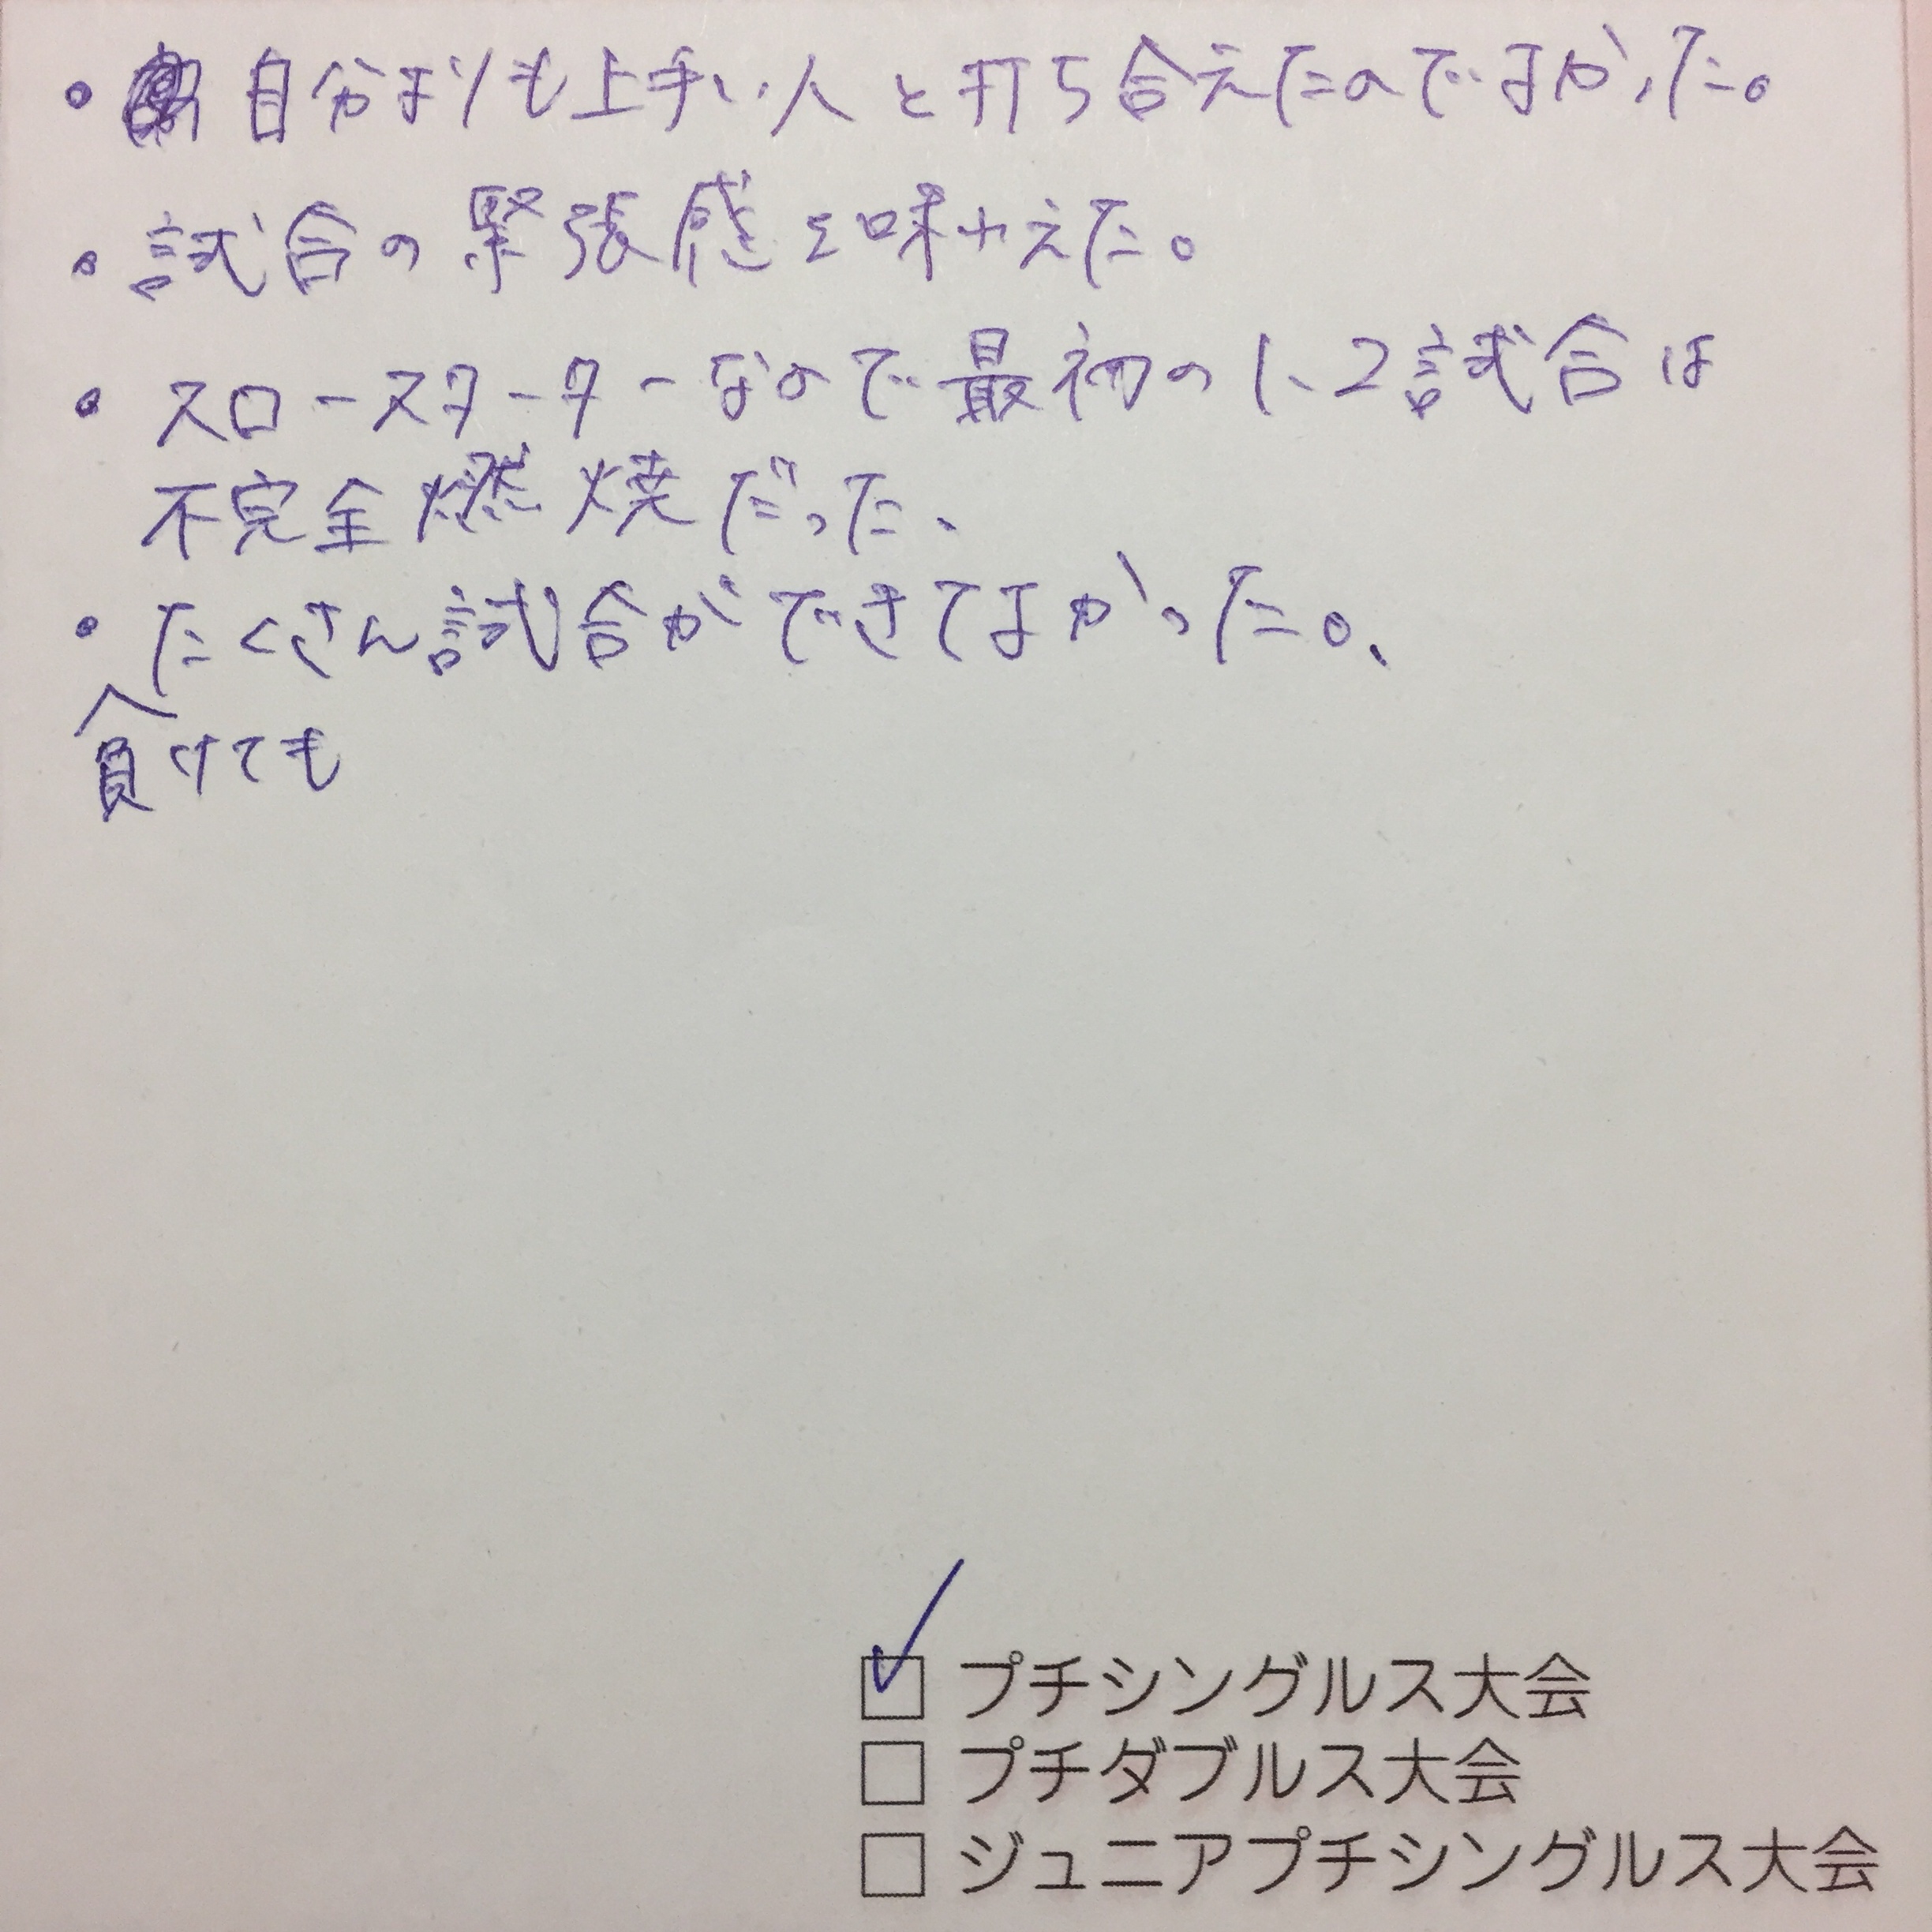 ・自分よりも上手い人と打ち合えたのでよかった。
・試合の緊張感を味わえた。
・スロースターターなので最初の1、2試合は
不完全燃焼だった、
・たくさん試合ができてよかった。、
負けても
プチシングルス大会
プチダブルス大会
ジュニアプチシングルス大会